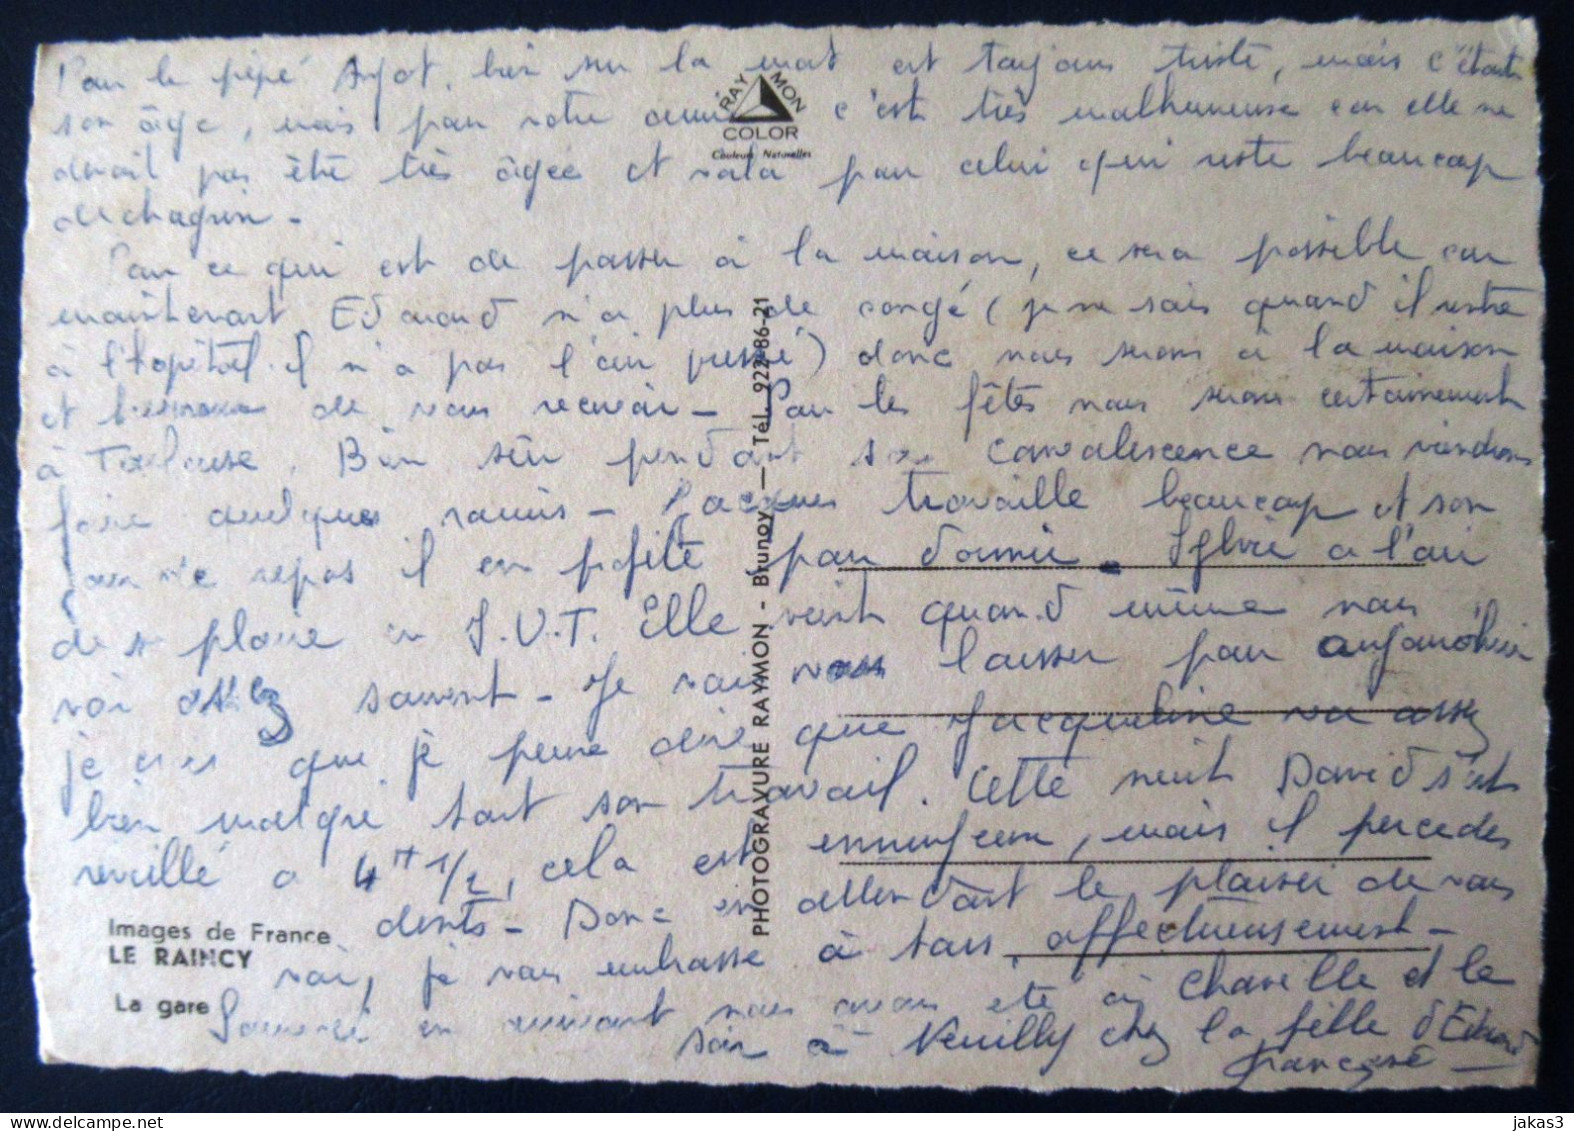 Pour le pépé Ayot, bien sur la mort est toujours triste, mais c'était
son âge, mais pour votre amie c'est très malheureuse car elle ne
devait pas être très âgée et voilà pour celui qui reste beaucoup
de chagrin -
Pour ce qui est de passer à la maison, ce sera possible car
maintenant Edouard n'a plus de congé (je ne sais quand il rentre
à l'hôpital. il n'a pas l'air pressé) donc nous serons à la maison
et heureux de vous recevoir - Pour les fêtes nous serons certainement
à Toulouse. Bien sûr pendant sa convalescence nous viendrons
faire quelques - Jacques travaille beaucoup et son
jour de repos il en profite pour dormir. Sylvie a l'air
de se plaire en I.U.T. Elle vient quand même nous
voir assez souvent - Je vais vous laisser pour aujourd'hui
je crois que je peux dire que Jacqueline va assez
bien malgré tout son travail. Cette nuit David s'est
réveillé à 4H 1/2, cela est ennuyeux, mais il perce des
dents - Donc en attendant le plaisir de vous
voir, je vous embrasse à tous affectueusement -
en revenant nous avons été à Chaville et le
soir à Neuilly chez la fille d'Edouard
Françoise
RAYMON
COLOR
Couleurs Naturelles
PHOTOGRAVURE RAYMON - Brunoy — Tél. 922-86-21
Images de France
LE RAINCY
La gare
jakas3